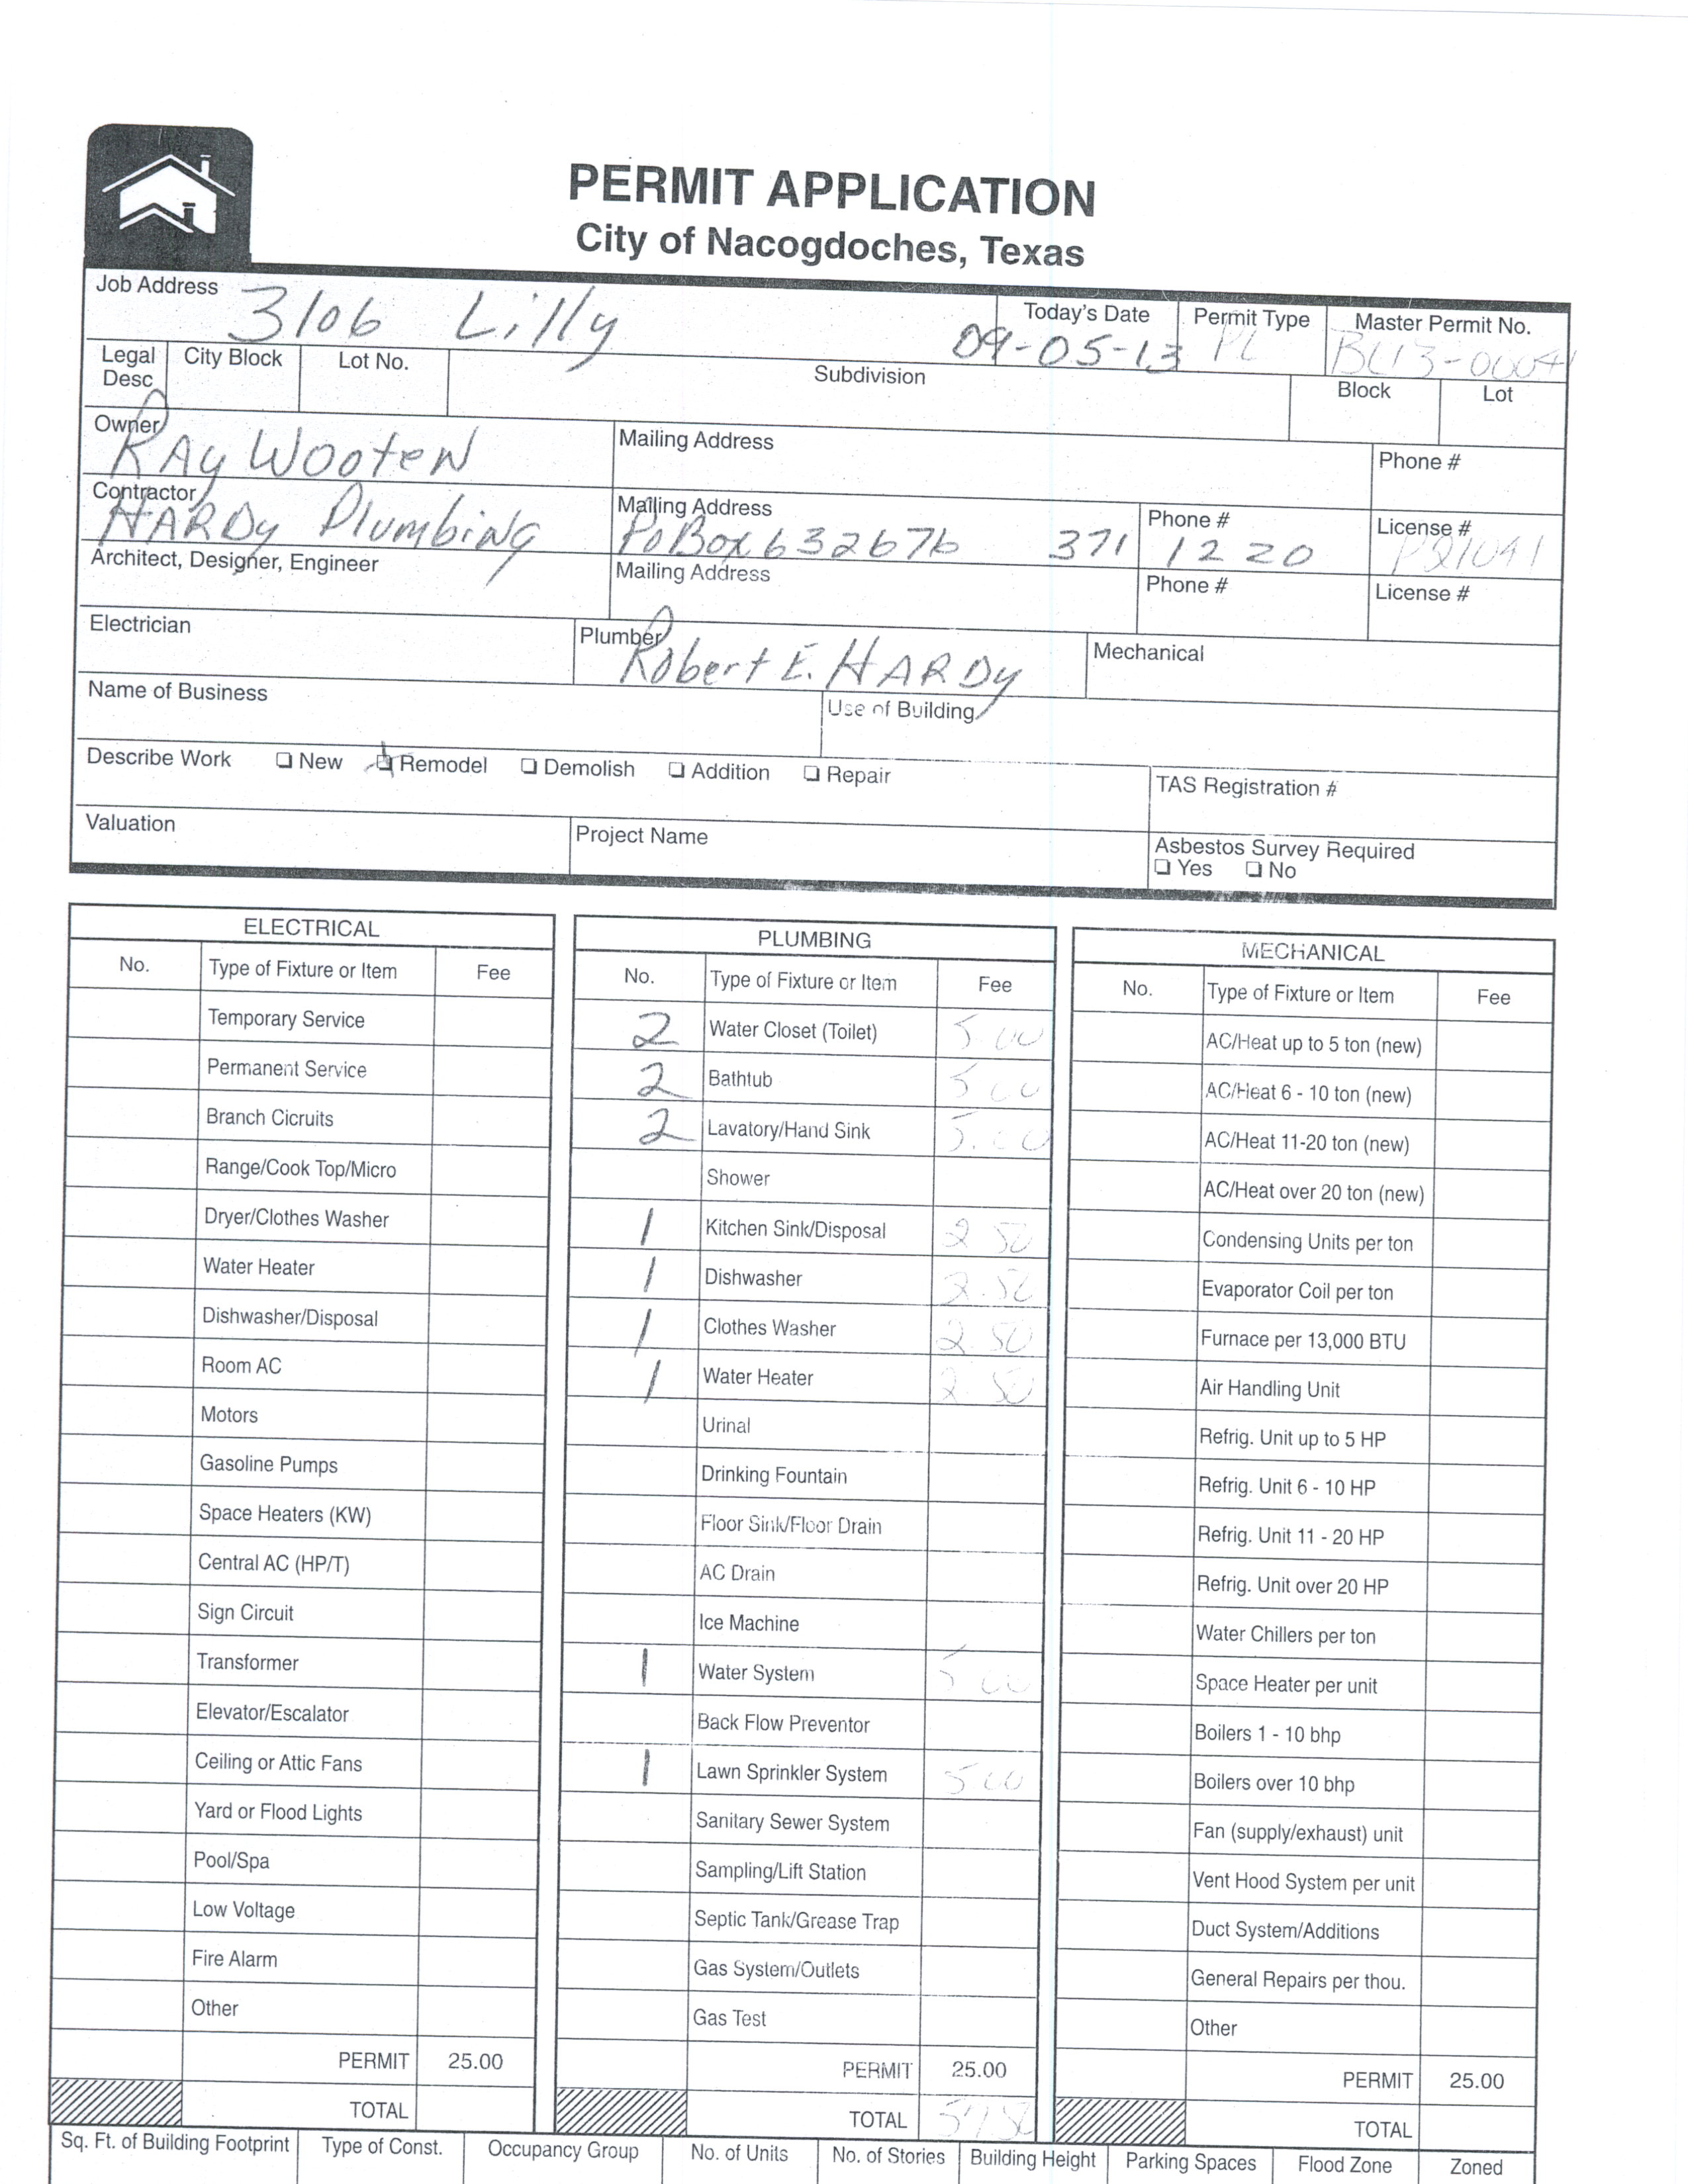 PERMIT APPLICATION
City of Nacogdoches, Texas
Job Address 3106 Lilly Today's Date 09-05-13 Permit Type PL Master Permit No.
Legal Desc. City Block Lot No. Subdivision Block Lot
Owner Ray Wooten Mailing Address Phone #
Contractor HARDy Plumbing Mailing Address PoBox 632676 371 Phone # 1220 License #
Architect, Designer, Engineer Mailing Address Phone # License #
Electrician Plumber Robert E. HARDy Mechanical
Name of Business Use of Building
Describe Work New Remodel Demolish Addition Repair TAS Registration #
Valuation Project Name Asbestos Survey Required
Yes No
ELECTRICAL PLUMBING MECHANICAL
No. Type of Fixture or Item Fee No. Type of Fixture or Item Fee No. Type of Fixture or Item Fee
Temporary Service 2 Water Closet (Toilet) 5.00 AC/Heat up to 5 ton (new)
Permanent Service 2 Bathtub 5 00 AC/Heat 6 - 10 ton (new)
Branch Cicruits 2 Lavatory/Hand Sink 5.00 AC/Heat 11-20 ton (new)
Range/Cook Top/Micro Shower AC/Heat over 20 ton (new)
Dryer/Clothes Washer 1 Kitchen Sink/Disposal 2 50 Condensing Units per ton
Water Heater 1 Dishwasher 2.50 Evaporator Coil per ton
Dishwasher/Disposal 1 Clothes Washer 2 50 Furnace per 13,000 BTU
Room AC 1 Water Heater 2 50 Air Handling Unit
Motors Urinal Refrig. Unit up to 5 HP
Gasoline Pumps Drinking Fountain Refrig. Unit 6 - 10 HP
Space Heaters (KW) Floor Sink/Floor Drain Refrig. Unit 11 - 20 HP
Central AC (HP/T) AC Drain Refrig. Unit over 20 HP
Sign Circuit Ice Machine Water Chillers per ton
Transformer 1 Water System 5 00 Space Heater per unit
Elevator/Escalator Back Flow Preventor Boilers 1 - 10 bhp
Ceiling or Attic Fans 1 Lawn Sprinkler System 5 00 Boilers over 10 bhp
Yard or Flood Lights Sanitary Sewer System Fan (supply/exhaust) unit
Pool/Spa Sampling/Lift Station Vent Hood System per unit
Low Voltage Septic Tank/Grease Trap Duct System/Additions
Fire Alarm Gas System/Outlets General Repairs per thou.
Other Gas Test Other
PERMIT 25.00 PERMIT 25.00 PERMIT 25.00
TOTAL TOTAL TOTAL
Sq. Ft. of Building Footprint Type of Const. Occupancy Group No. of Units No. of Stories Building Height Parking Spaces Flood Zone Zoned